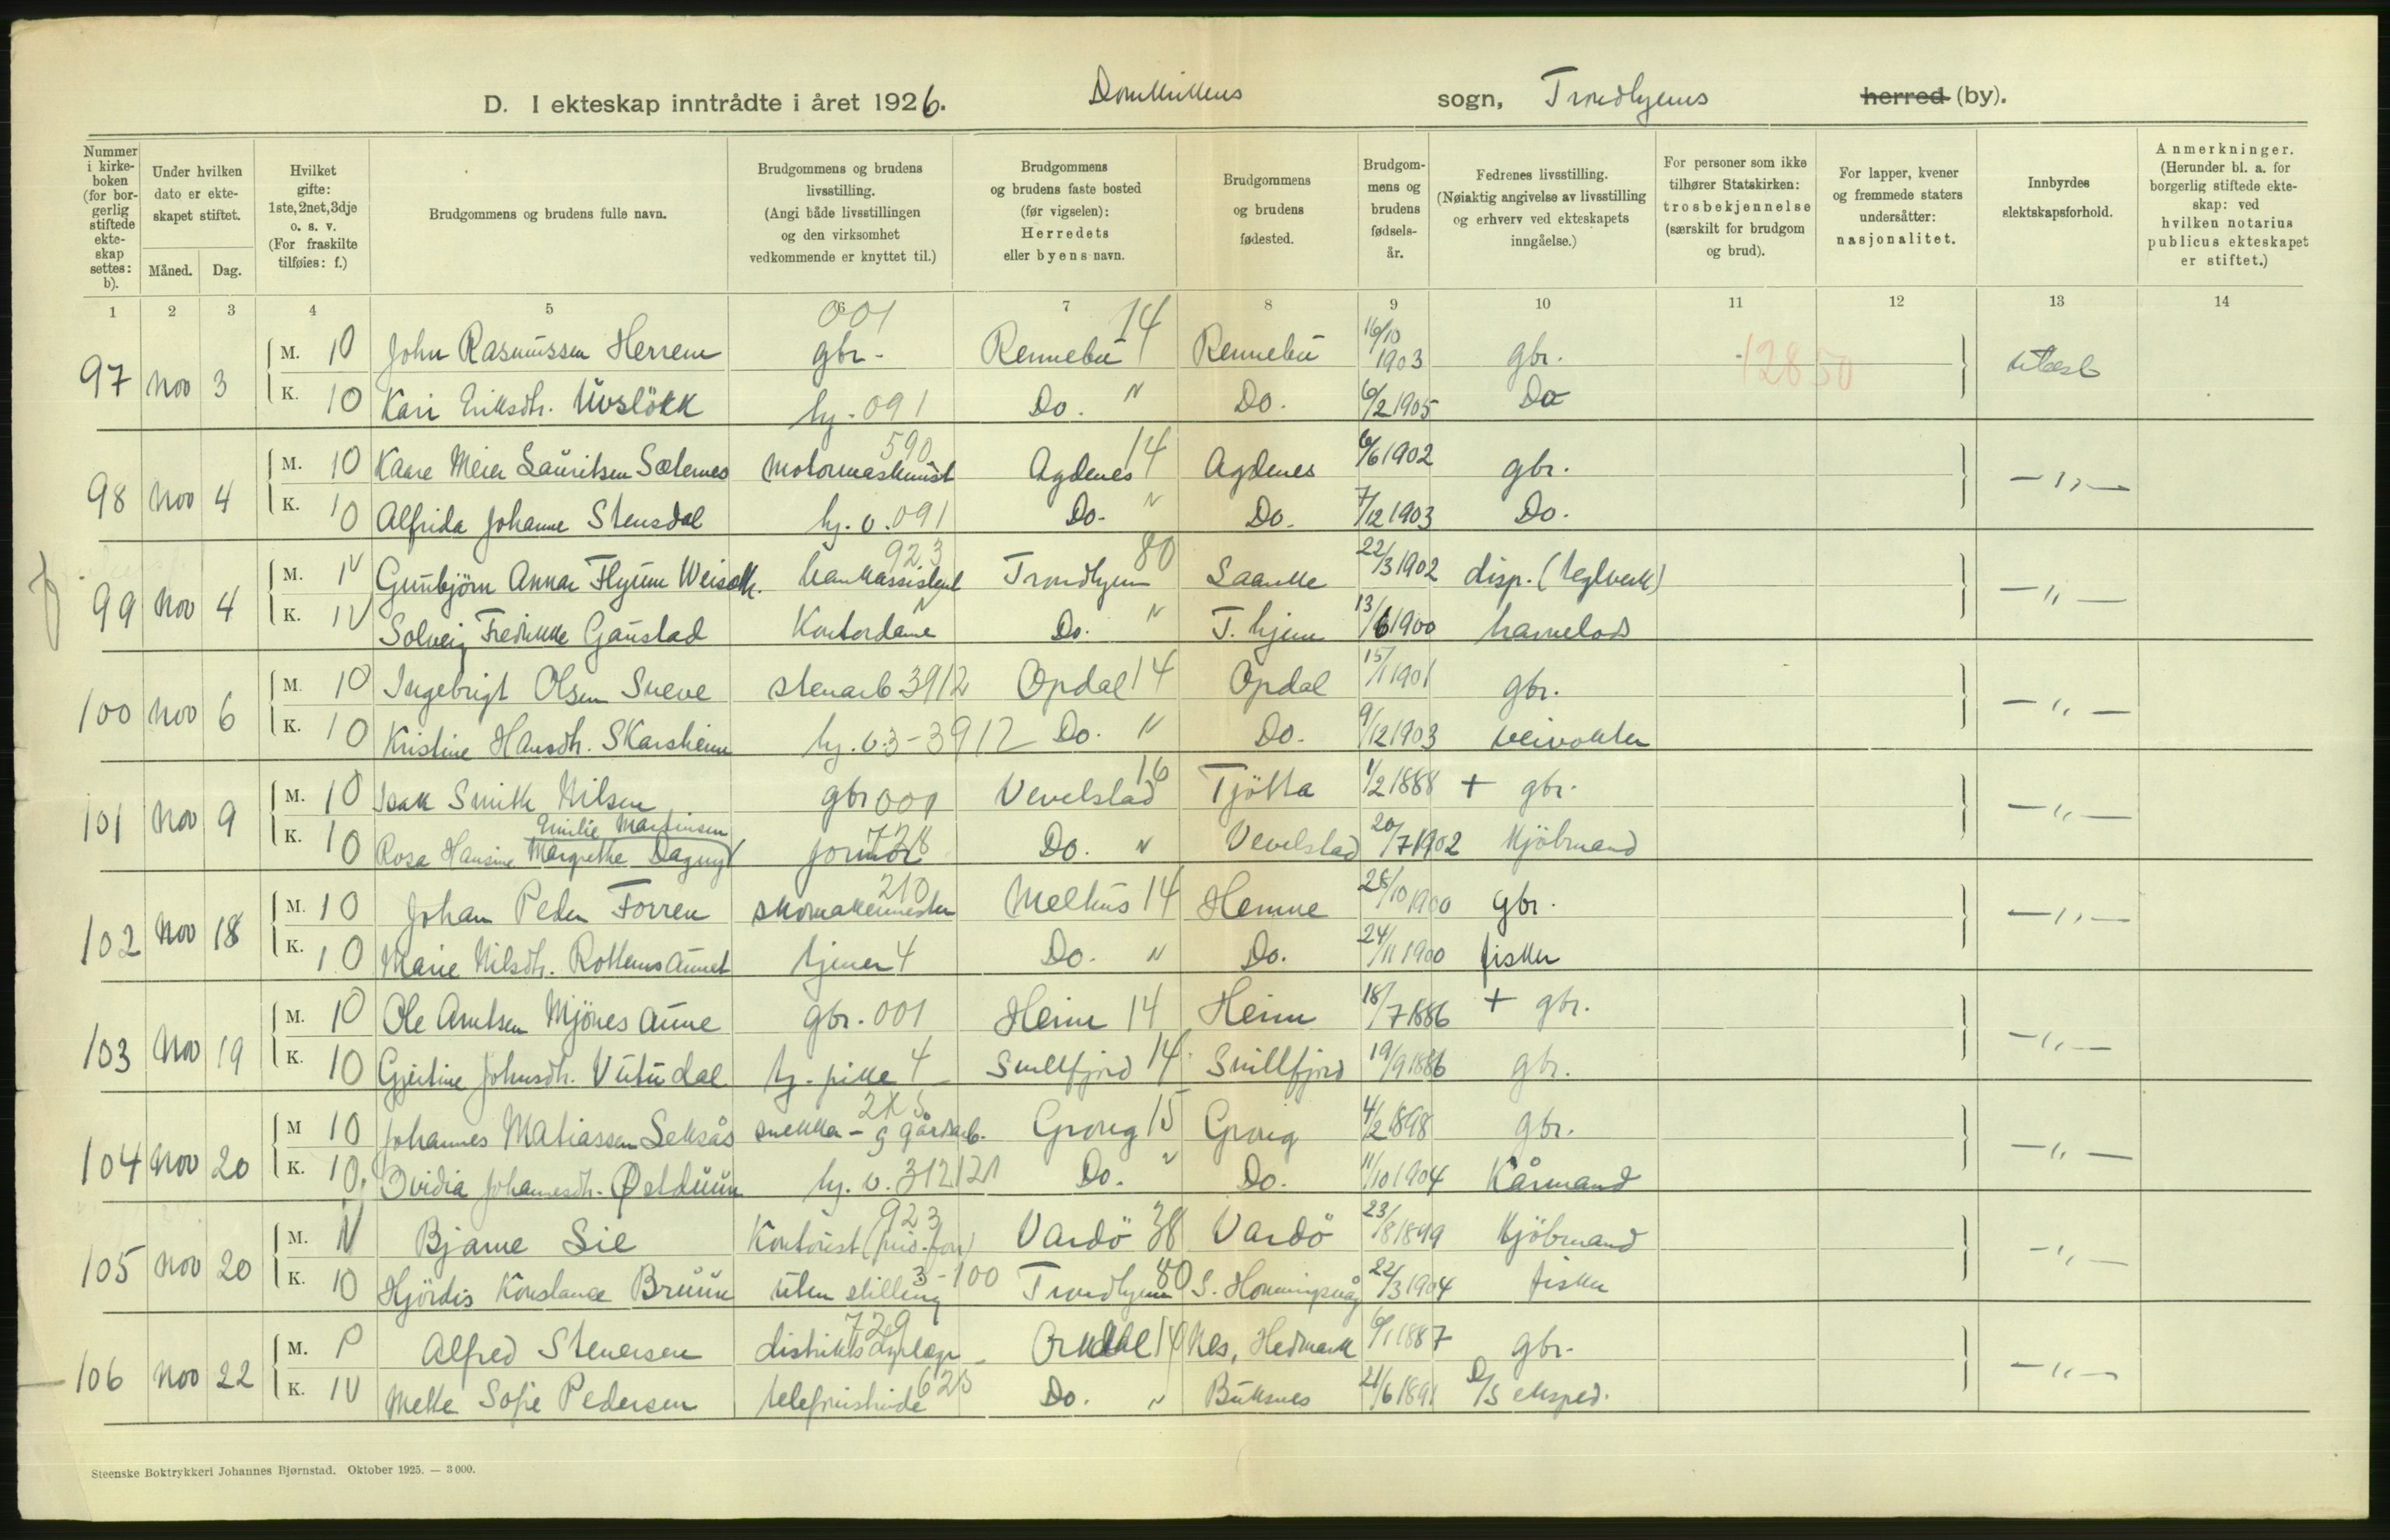 D. I ekteskap inntrådte i året 1926. Domkirkens sogn, Trondhjems herred (by).
Nummer i kirkeboken (for borgerlig stiftede ekteskap settes: b).
Under hvilken dato er ekteskapet stiftet.
Måned. Dag.
Hvilket gifte: 1ste, 2net, 3dje o. s. v. (For fraskilte tilføies: f.)
Brudgommens og brudens fulle navn.
Brudgommens og brudens livsstilling. (Angi både livsstillingen og den virksomhet vedkommende er knyttet til.)
Brudgommens og brudens faste bosted (før vigselen): Herredets eller byens navn.
Brudgommens og brudens fødested.
Brudgommens og brudens fødselsår.
Fedrenes livsstilling. (Nøiaktig angivelse av livsstilling og erhverv ved ekteskapets inngåelse.)
For personer som ikke tilhører Statskirken: trosbekjennelse (særskilt for brudgom og brud).
For lapper, kvener og fremmede staters undersåtter: nasjonalitet.
Innbyrdes slektskapsforhold.
Anmerkninger. (Herunder bl. a. for borgerlig stiftede ekteskap: ved hvilken notarius publicus ekteskapet er stiftet.)
1 2 3 4 5 6 7 8 9 10 11 12 13 14
97 Nov 3 M. 10 John Rasmussen Herrem gbr. 001 Rennebu 14 Rennebu 16/10 1903 gbr. 12850 ubesl
K. 10 Kari Eriksdtr. Uvsløkk hj. 091 Do. " Do. 6/2 1905 Do
98 Nov 4 M. 10 Kaare Meier Lauritsen Sæternes Motormaskinist 590 Agdenes 14 Agdenes 6/6 1902 gbr. — " —
K. 10 Alfrida Johanne Stensdal hj. v. 091 Do. " Do. 7/12 1903 Do.
99 Nov 4 M. Gunbjörn Annar Flyum Weiseth. bankassistent 923 Trondhjem 80 Saanke 22/3 1902 disp. (teglverk) — " —
K. Solveig Fredrikke Gaustad Kontordame " Do. " T.hjem 13/6 1900 havnelods
100 Nov 6 M. 10 Ingebrigt Olsen Sneve stenarb 3912 Opdal 14 Opdal 15/1 1901 gbr. — " —
K. 10 Kristine Hansdtr. Skarsheim hj. v. 3-3912 Do. " Do. 9/12 1903 veivokter
101 Nov 9 M. 10 Isak Smith Nilsen gbr 001 Vevelstad 16 Tjötta 1/2 1888 + gbr. — " —
Emilie Martinsen
K. 10 Rosa Hansine Margrethe Dagny jormor 728 Do. " Vevelstad 20/7 1902 Kjöbmand
102 Nov 18 M. 10 Johan Peder Forren skomakermester 210 Melhus 14 Hemne 28/10 1900 gbr. — " —
K. 10 Marie Nilsdtr. Rottemsaunet tjener 4 Do. " Do. 24/11 1900 fisker
103 Nov 19 M. 10 Ole Arntsen Mjönesaune gbr. 001 Heim 14 Heim 18/7 1886 + gbr. — " —
K. 10 Gjertine Johnsdtr. Vutudal tj. pike 4 Snillfjord 14 Snillfjord 19/9 1886 gbr.
104 Nov 20 M 10 Johannes Matiassen Seksås snekker - g gårdarb. Grong 15 Grong 4/2 1898 gbr. — " —
K. 10. Ovidia Johannesdtr. Østduun hj. v. 312121 Do. " Do. 11/10 1904 Kårmand
105 Nov 20 M. Bjarne Lie Kontorist 923 Vardö 38 Vardö 23/8 1899 Kjöbmand — " —
K. 10 Hjördis Konstance Bruun uten stilling 3-100 Trondhjem 80 S. Honningsvåg 22/3 1904 fisker
106 Nov 22 M. Alfred Stenersen distriktsdyrlæge 729 Orkdal 14 Nes, Hedmark 6/1 1887 gbr. — " —
K. Mette Sofie Pedersen telefonistinde 625 Do. " Buksnes 21/6 1891 D/S eksped.
Steenske Boktrykkeri Johannes Bjørnstad. Oktober 1925. — 3000.